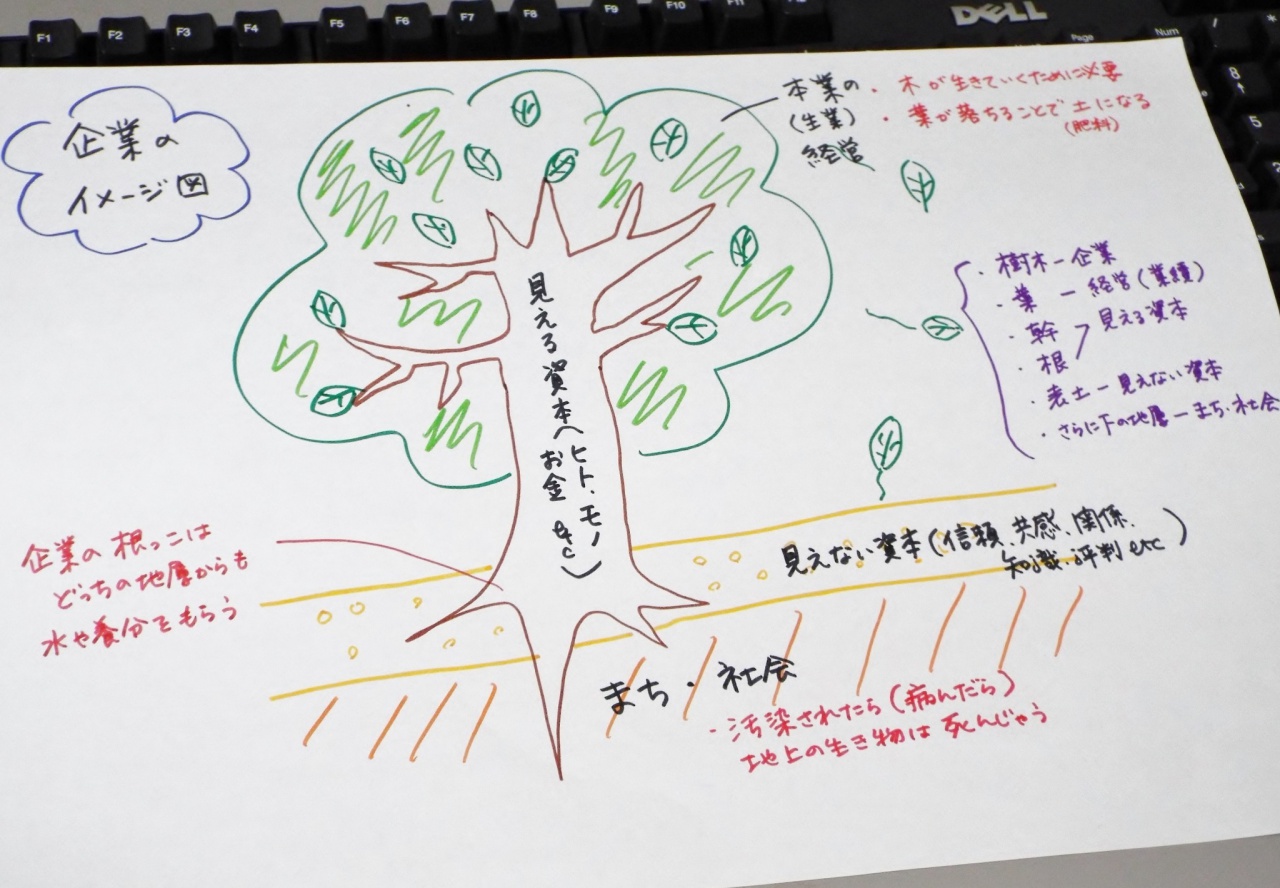 F1 F2 F3 F4 F5 F6 F7 F8 F9 F10 F11
DELL
Page
Num
8
5
企業の
イメージ図
本業の
(生業)
経営
・木が生きていくために必要
・葉が落ちることで土になる
(肥料)
見える資本(ヒト、モノ
お金 etc)
・樹木ー企業
・葉 ー 経営(業績)
・幹
・根
見える資本
・表土ー見えない資本
・さらに下の地層ーまち・社会
企業の根っこは
どっちの地層からも
水や養分をもらう
見えない資本(信頼、共感、関係、
知識、評判 etc)
まち・社会
・汚染されたら(病んだら)
地上の生き物は死んじゃう